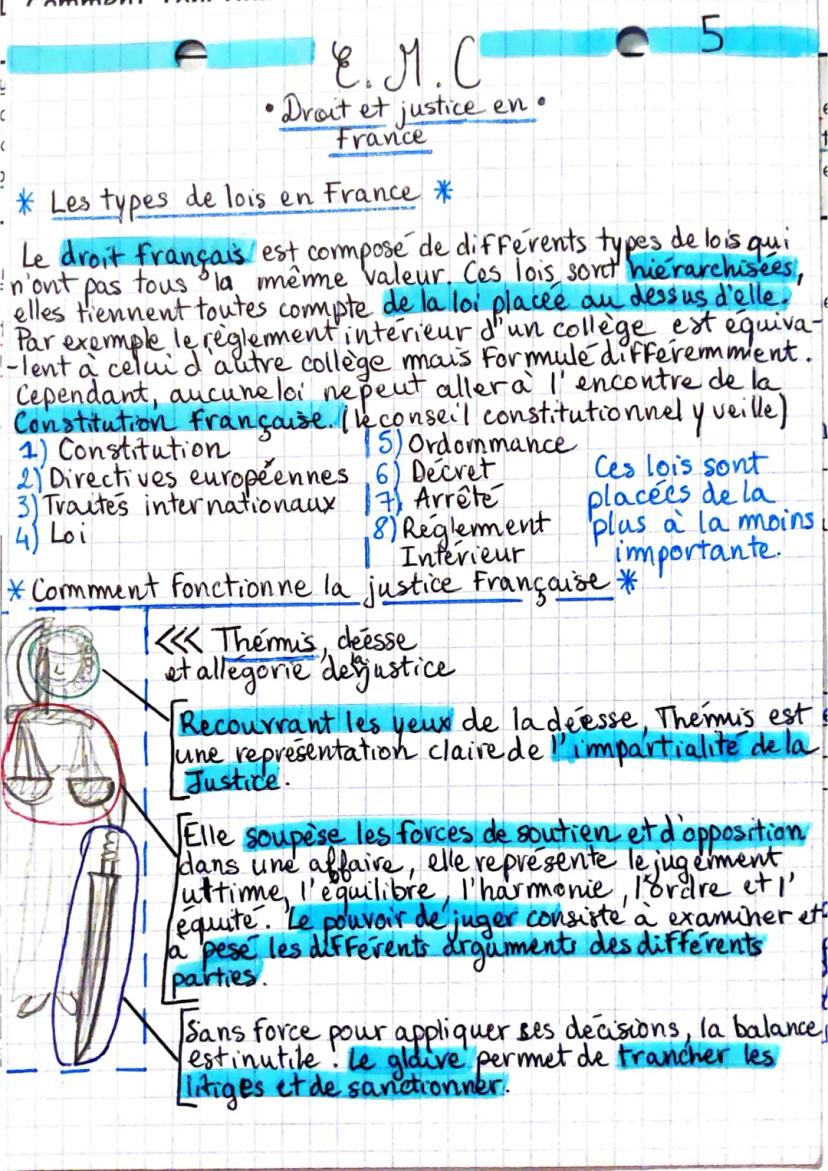 5
E.M.C
• Droit et justice en •
France
* Les types de lois en France *
Le droit français est composé de différents types de lois qui
n'ont pas tous la même valeur. Ces lois sont hiérarchisées,
elles tiennent toutes compte de la loi placée au dessus d'elle.
Par exemple le règlement intérieur d'un collège est équiva-
-lent à celui d'autre collège mais formulé différemment.
Cependant, aucune loi ne peut aller à l'encontre de la
Constitution française. (le conseil constitutionnel y veille)
1) Constitution
2) Directives européennes
3) Traités internationaux
4) Loi
5) Ordonnance
6) Décret
7) Arrêté
8) Règlement
Intérieur
Ces lois sont
placées de la
plus à la moins
importante.
* Comment fonctionne la justice française *
<<< Thémis, déesse
et allégorie de la justice
Recouvrant les yeux de la déesse, Thémis est
une représentation claire de l'impartialité de la
Justice.
Elle soupèse les forces de soutien et d'opposition
dans une affaire, elle représente le jugement
ultime, l'équilibre, l'harmonie, l'ordre et l'
équité. Le pouvoir de juger consiste à examiner et
à pesé les différents arguments des différents
parties.
Sans force pour appliquer ses décisions, la balance
est inutile ! Le glaive permet de trancher les
litiges et de sanctionner.